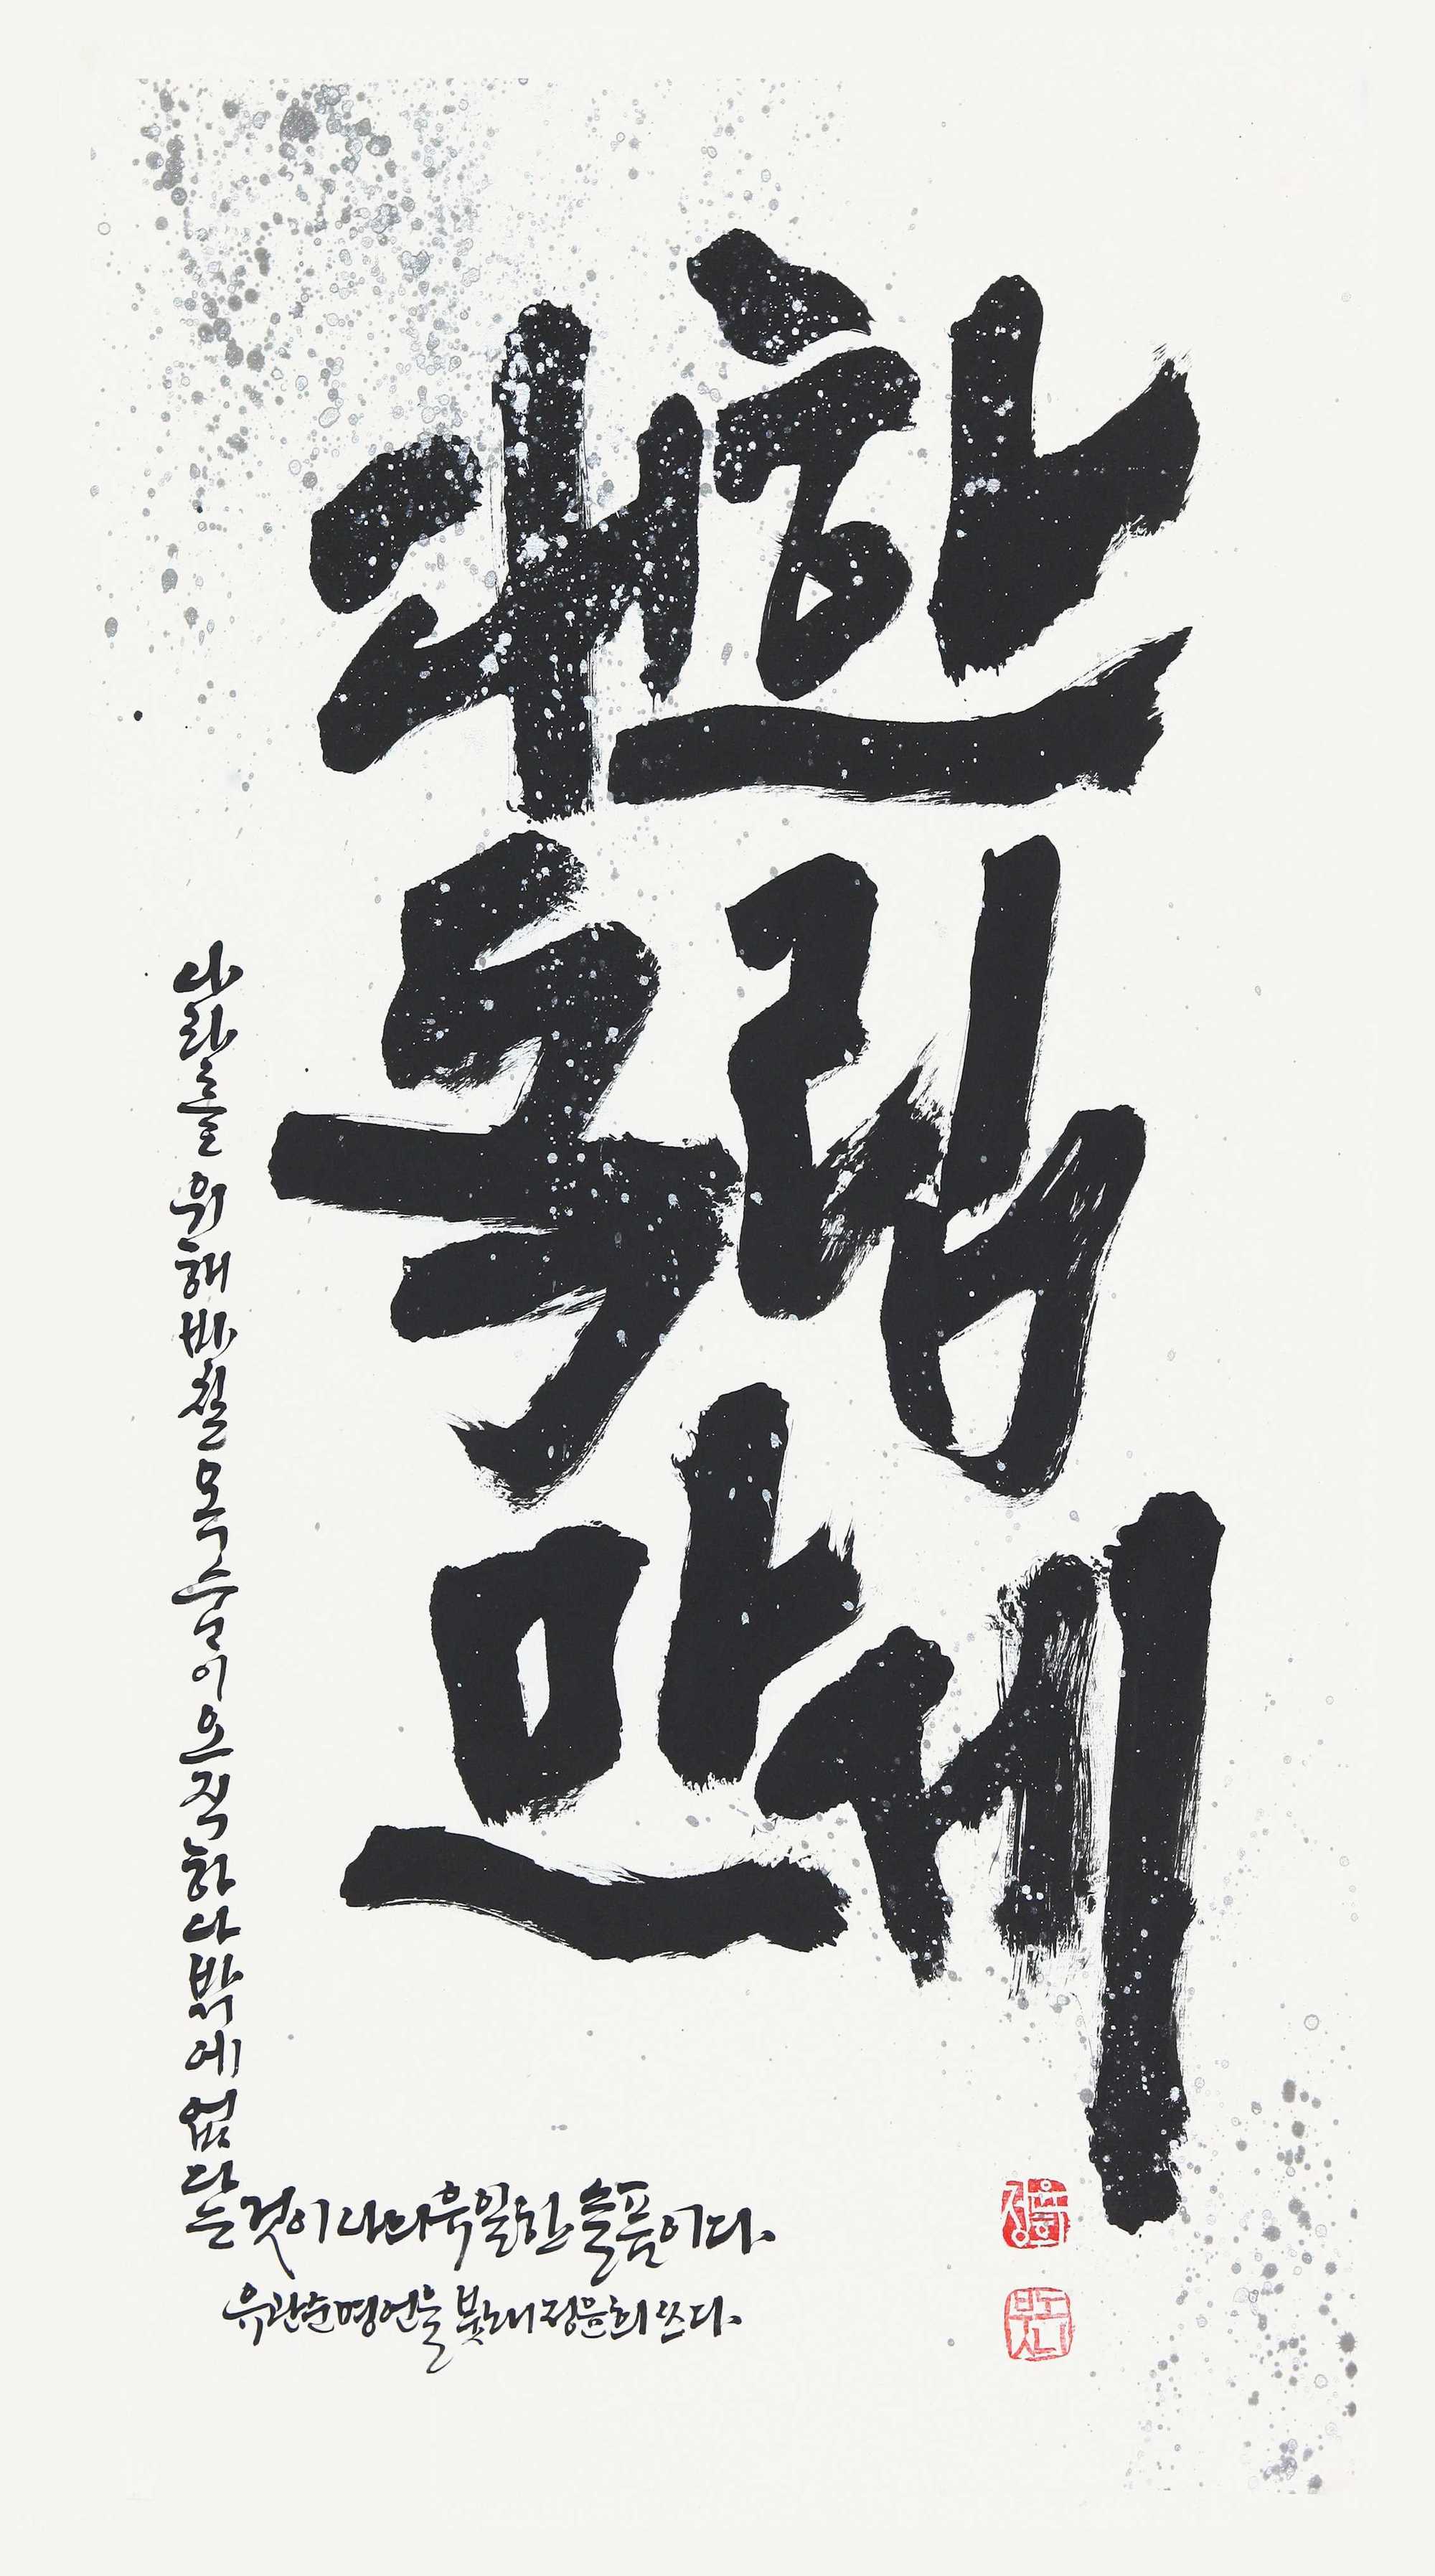 대한
독립
만세
나라를 위해 바칠 목숨이 오직 하나밖에 없다
는 것이 나의 유일한 슬픔이다.
유관순 명언을 정윤희 쓰다.
정윤희